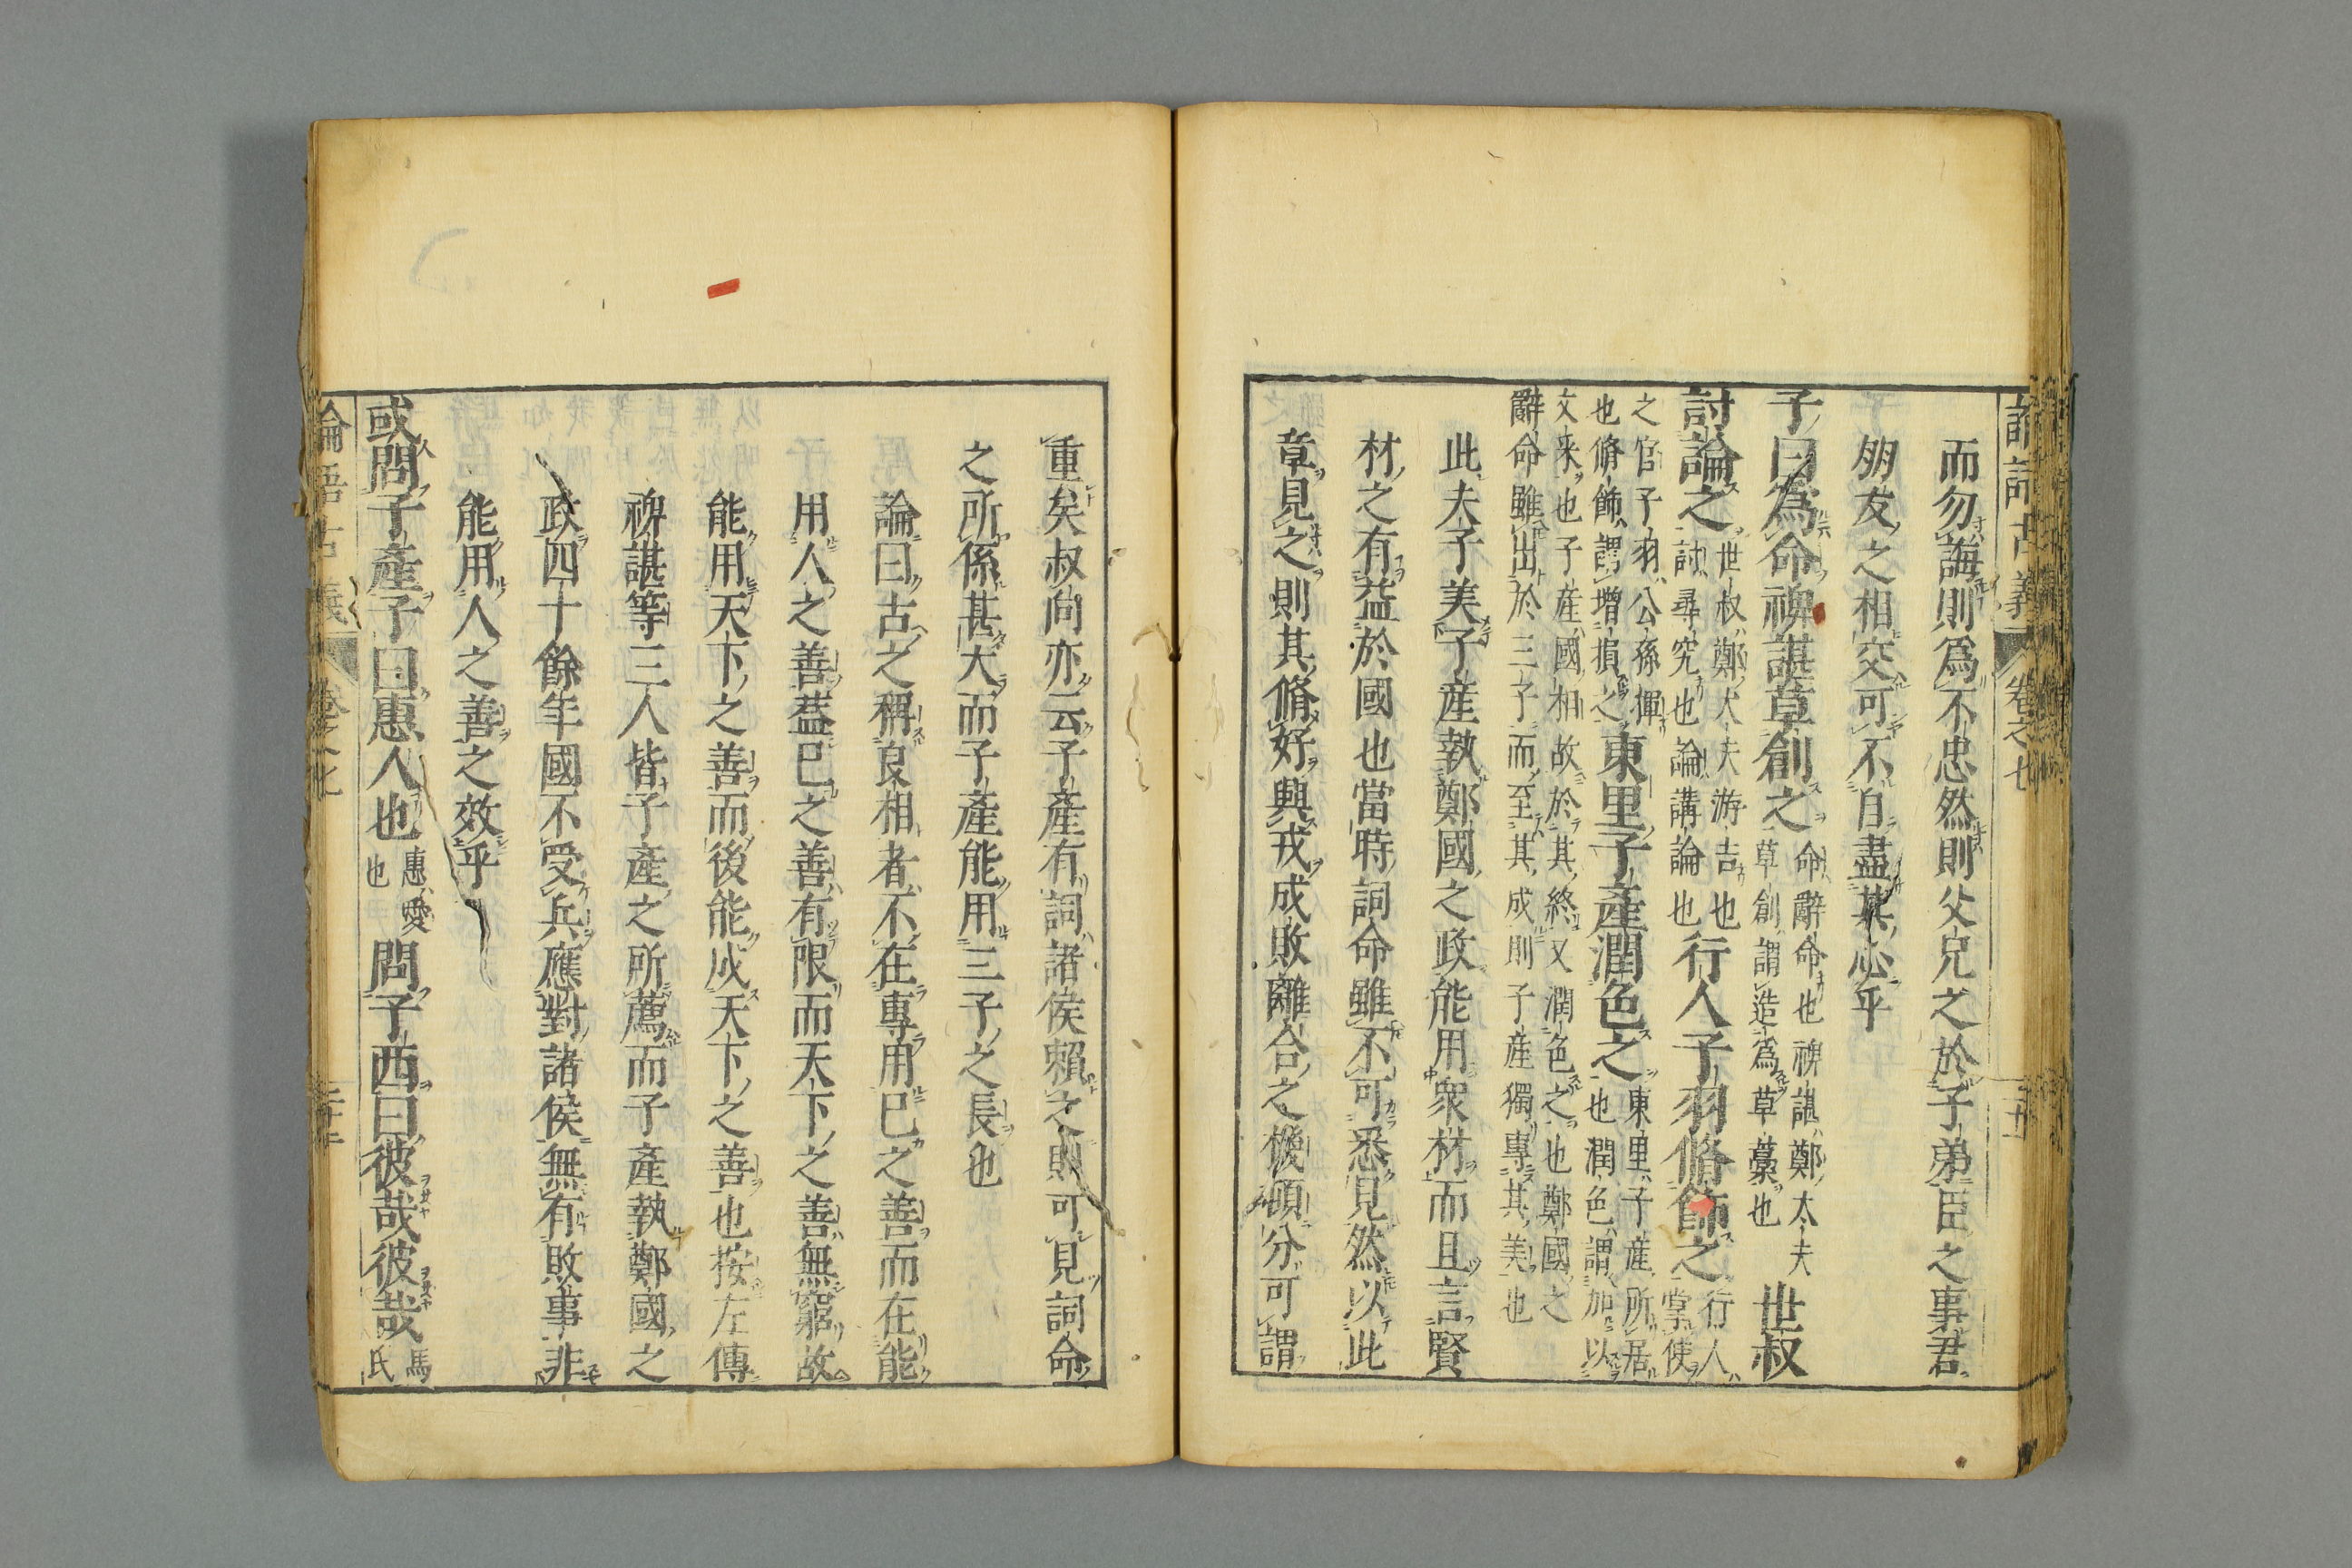 而勿誨則為不忠然則父兄之於子弟臣之事君
朋友之相交可不自盡其心乎
子曰為命裨諶草創之命辭命也裨諶鄭大夫草創謂造為草藁也世叔
討論之世叔鄭大夫游吉也討尋究也論講論也行人子羽脩飾之行人掌使
之官子羽公孫揮也脩飾謂增損之東里子產潤色之東里子產所居也潤色謂加以
文采也子產國相故於其終又潤色之也鄭國之
辭命雖出於三子而至其成則子產獨專其美也
此夫子美子產執鄭國之政能用衆材而且言賢
材之有益於國也當時詞命雖不可悉見然以此
章見之則其脩好興戎成敗離合之機頓分可謂
重矣叔向亦云子產有詞諸侯賴之則可見詞命
之所係甚大而子產能用三子之長也
論曰古之稱良相者不在專用己之善而在能
用人之善蓋己之善有限而天下之善無窮故
能用天下之善而後能成天下之善也按左傳
裨諶等三人皆子產之所薦而子產執鄭國之
政四十餘年國不受兵應對諸侯無有敗事非
能用人之善之效乎
或問子產子曰惠人也惠愛也問子西曰彼哉彼哉馬氏
論語古義 卷之七